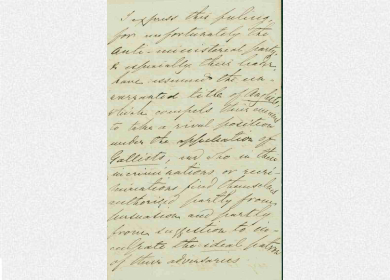 I express this feeling,
for unfortunately the
Anti-ministerial party
& especially their leader
have assumed the un-
warranted title of
which compels their
to take a rival position
under the appellation of
Gallists, and so in their
incriminations or recri-
minations find themselves
authorized partly from
persuasion and partly
from suggestion to in-
culpate the ideal patron
of their adversaries